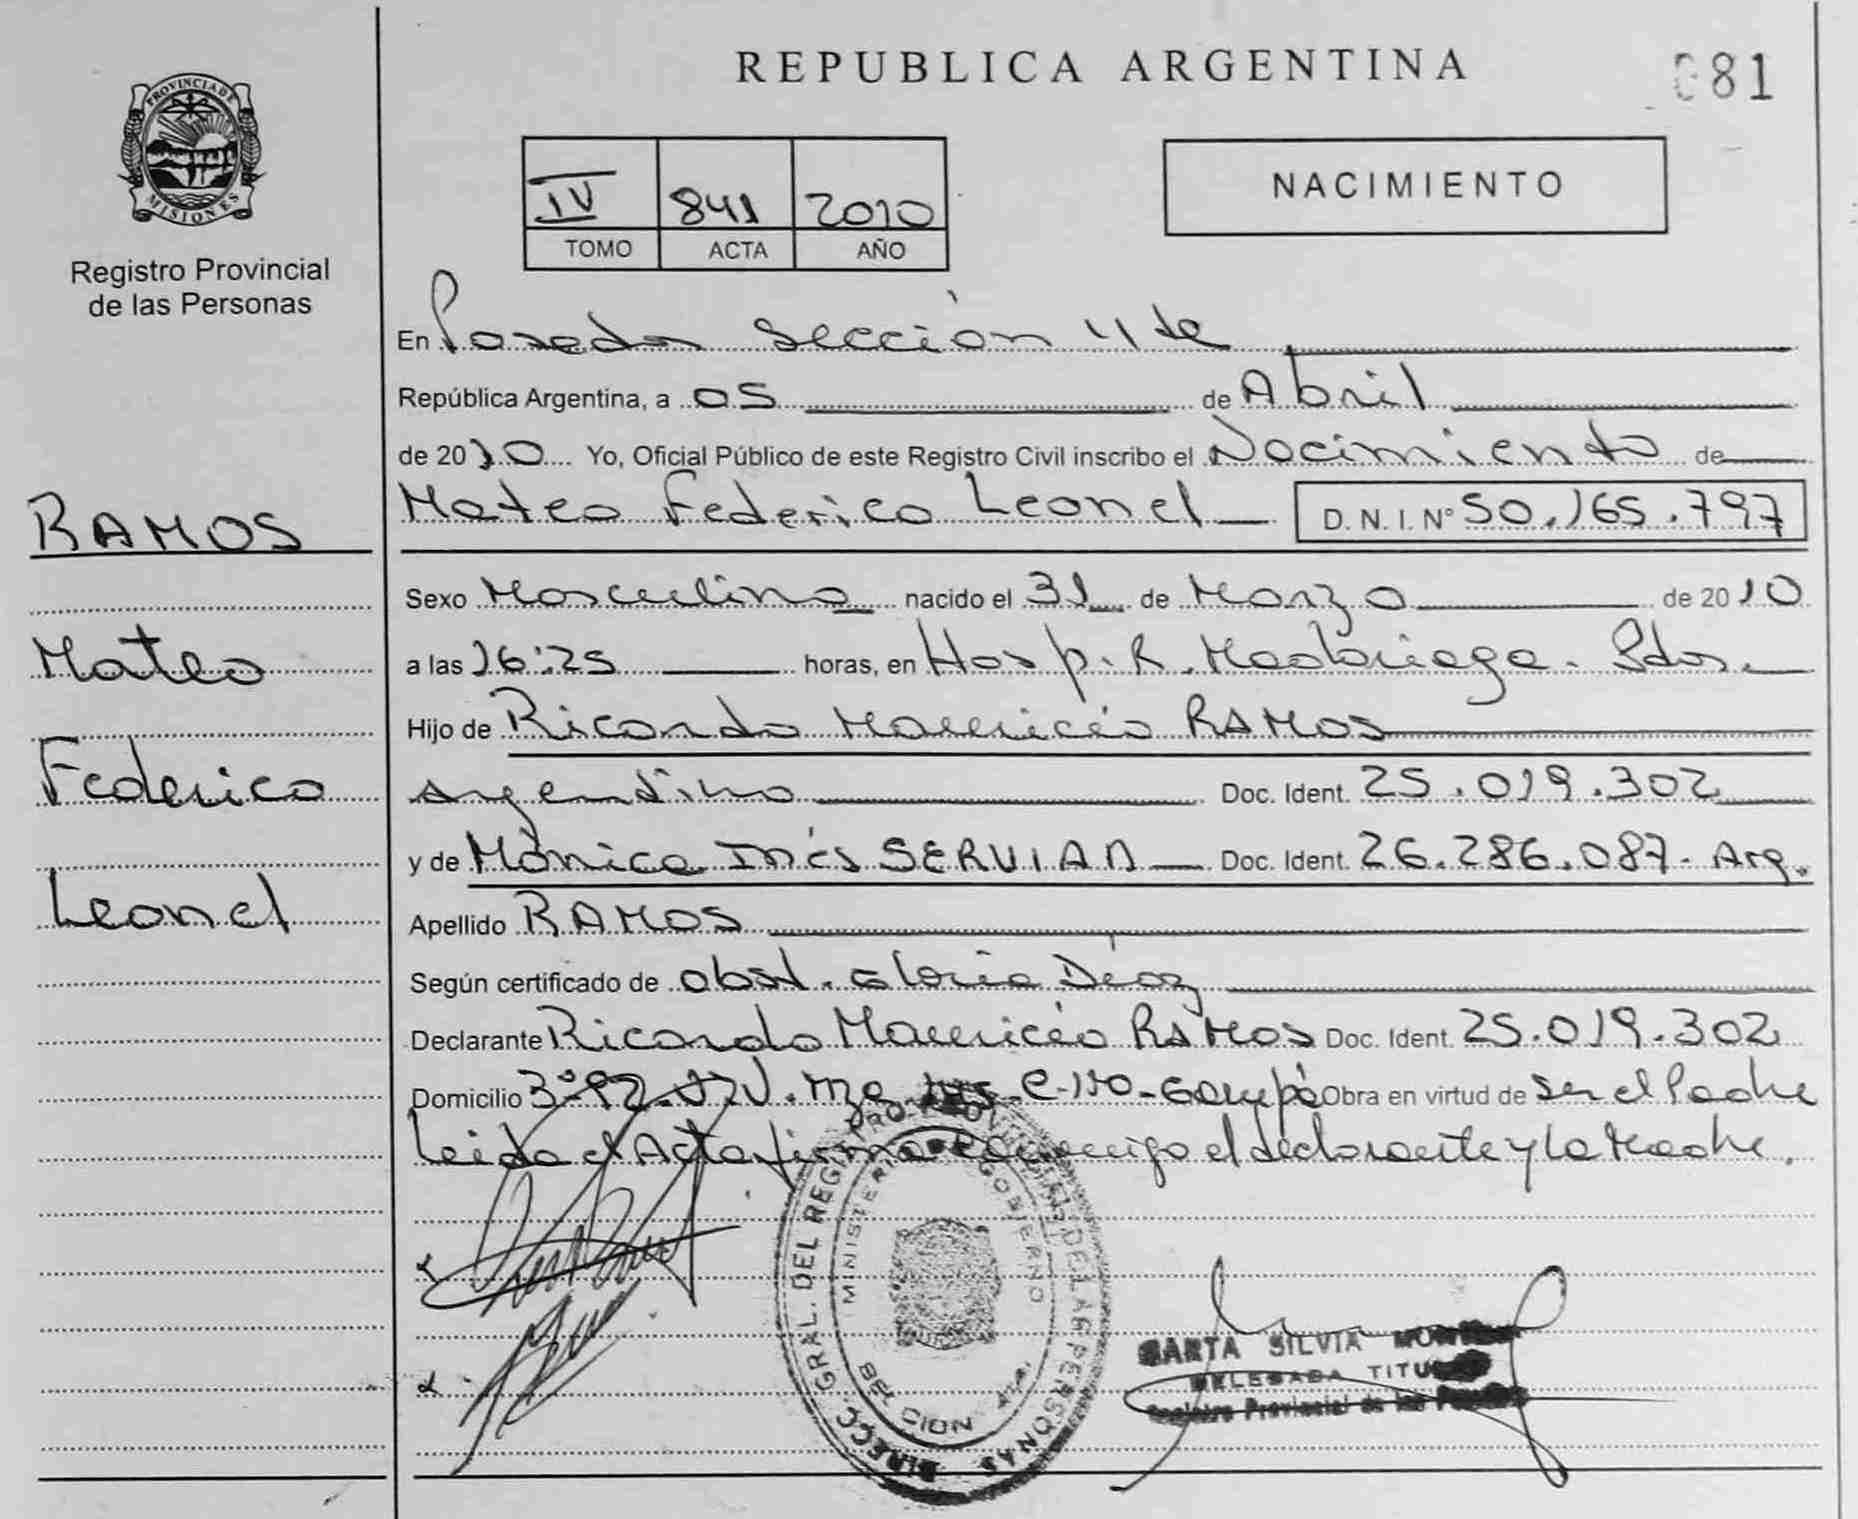 REPUBLICA ARGENTINA
081
PROVINCIA DE
MISIONES
Registro Provincial
de las Personas
IV 841 2010
TOMO ACTA AÑO
NACIMIENTO
En Posadas Sección 11 de
República Argentina, a 05 de Abril
de 2010 Yo, Oficial Público de este Registro Civil inscribo el Nacimiento de
Mateo Federico Leonel D.N.I. Nº 50.165.797
RAMOS
Mateo
Federico
Leonel
Sexo Masculino nacido el 31 de Marzo de 2010
a las 16:25 horas, en Hosp. R. Madariaga. Pdas.
Hijo de Ricardo Mauricio RAMOS
Argentino Doc. Ident. 25.019.302
y de Mónica Inés SERVIAN Doc. Ident. 26.286.087. Arg.
Apellido RAMOS
Según certificado de obst. Gloria Díaz
Declarante Ricardo Mauricio RAMOS Doc. Ident. 25.019.302
Domicilio Obra en virtud de Ser el Padre
Leida el Acta firma conmigo el declarante y la Madre.
DIRECC. GRAL. DEL REGISTRO PROVINCIAL DE LAS PERSONAS
MINISTERIO GOBIERNO
SECCION
MARTA SILVIA
DELEGADA TITULAR
Registro Provincial de las Personas